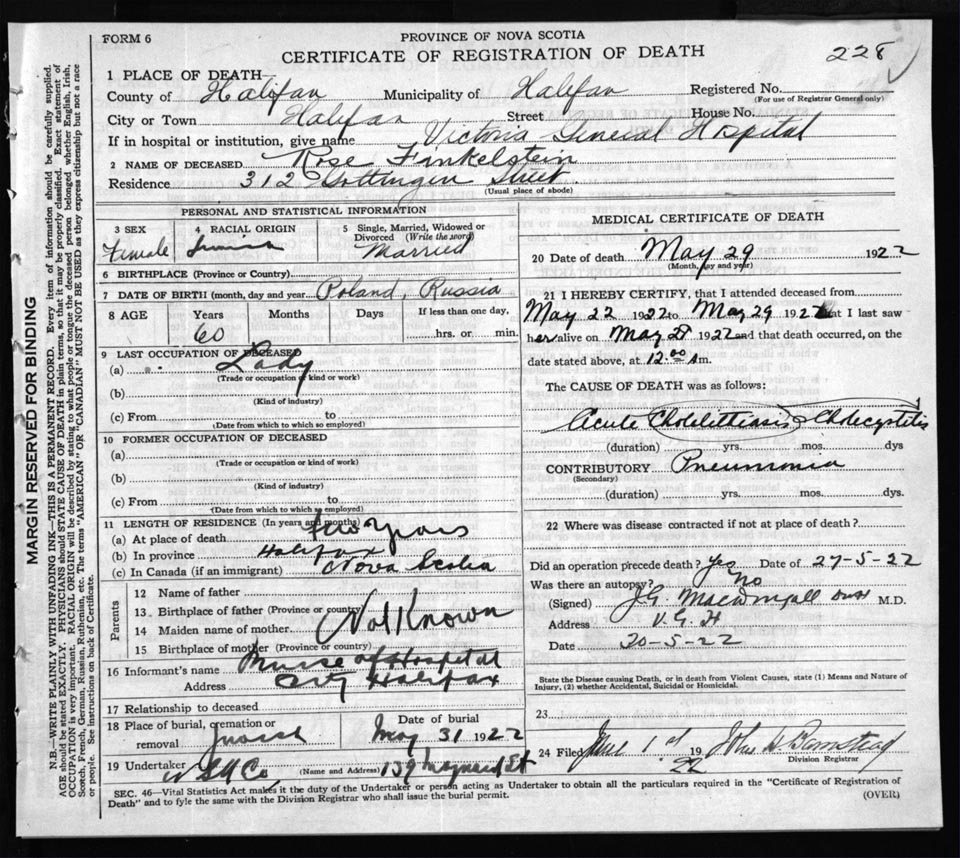 FORM 6
PROVINCE OF NOVA SCOTIA
CERTIFICATE OF REGISTRATION OF DEATH
228
1 PLACE OF DEATH—
County of Halifax Municipality of Halifax Registered No.
(For use of Registrar General only)
City or Town Halifax Street House No.
If in hospital or institution, give name Victoria General Hospital
2 NAME OF DECEASED Rose Finkelstein
Residence 312 Gottingen Street.
(Usual place of abode)
PERSONAL AND STATISTICAL INFORMATION
3 SEX Female
4 RACIAL ORIGIN
5 Single, Married, Widowed or Divorced (Write the word) Married
6 BIRTHPLACE (Province or Country)
7 DATE OF BIRTH (month, day and year) Poland, Russia
8 AGE Years 60 Months Days If less than one day, hrs. or min.
9 LAST OCCUPATION OF DECEASED
(a) Lady
(Trade or occupation of kind or work)
(b)
(Kind of industry)
(c) From to
(Date from which to which so employed)
10 FORMER OCCUPATION OF DECEASED
(a)
(Trade or occupation or kind of work)
(b)
(Kind of industry)
(c) From to
(Date from which to which so employed)
11 LENGTH OF RESIDENCE (In years and months)
(a) At place of death Years
(b) In province Halifax
(c) In Canada (if an immigrant) Nova Scotia
Parents
12 Name of father
13 Birthplace of father (Province or country)
14 Maiden name of mother Not Known
15 Birthplace of mother (Province or country)
16 Informant's name Nurse of Hospital
Address City Halifax
17 Relationship to deceased
18 Place of burial, cremation or removal
Date of burial May 31 1922
19 Undertaker Co (Name and Address) 139 Maynard St
MEDICAL CERTIFICATE OF DEATH
20 Date of death May 29 1922
(Month, day and year)
21 I HEREBY CERTIFY, that I attended deceased from
May 22 1922 to May 29 1922 that I last saw
her alive on May 1922 and that death occurred, on the
date stated above, at 12.00 m.
The CAUSE OF DEATH was as follows:
Acute Cholelittiasis & Cholecystitis
(duration) yrs. mos. dys
CONTRIBUTORY Pneumonia
(Secondary)
(duration) yrs. mos. dys.
22 Where was disease contracted if not at place of death?
Did an operation precede death? Yes Date of 27-5-22
Was there an autopsy? No
(Signed) J.G. M.D.
Address V. G. H
Date -5-22
State the Disease causing Death, or in death from Violent Causes, state (1) Means and Nature of
Injury, (2) whether Accidental, Suicidal or Homicidal.
23
24 Filed June 1st 1922 John Barnstead
Division Registrar
SEC. 46—Vital Statistics Act makes it the duty of the Undertaker or person acting as Undertaker to obtain all the particulars required in the "Certificate of Registration of
Death" and to fyle the same with the Division Registrar who shall issue the burial permit.
(OVER)
MARGIN RESERVED FOR BINDING
N.B.—WRITE PLAINLY WITH UNFADING INK—THIS IS A PERMANENT RECORD. Every item of information should be carefully supplied.
AGE should be stated EXACTLY. PHYSICIANS should STATE CAUSE OF DEATH in plain terms, so that it may be properly classified. Exact statement of
OCCUPATION is very important. RACIAL ORIGIN will be described by stating to what people or tongue the deceased person belonged whether English, Irish,
Scotch, French, German, Russian, Ruthenian, etc. The terms "AMERICAN" OR "CANADIAN" MUST NOT BE USED as they express citizenship but not a race
or people. See instructions on back of Certificate.